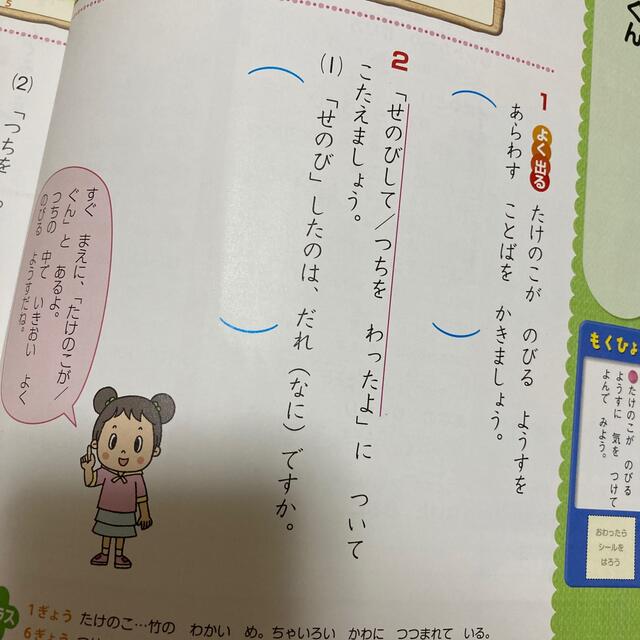 くん
もくひょ
たけのこが のびる
ようすに 気を つけて
よんで みよう。
おわったら
シールを
はろう
1 よく出る たけのこが のびる ようすを
あらわす ことばを かきましょう。
2 「せのびして/つちを わったよ」に ついて
こたえましょう。
(1) 「せのび」したのは、だれ(なに)ですか。
すぐ まえに、「たけのこが/
ぐん」と あるよ。
つちの 中で いきおい よく
のびる ようすだね。
(2) 「つちを
ラス
1ぎょう たけのこ…竹の わかい め。ちゃいろい かわに つつまれて いる。
6ぎょう